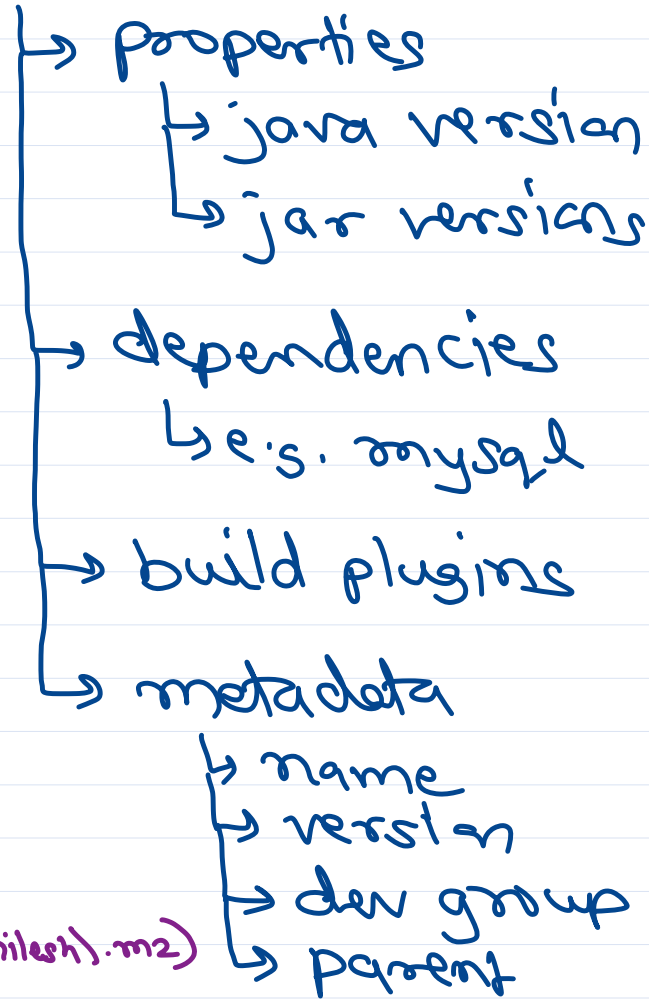 properties
java version
jar versions
dependencies
e.g. mysql
build plugins
metadata
name
version
dev group
parent
ilesh).m2)